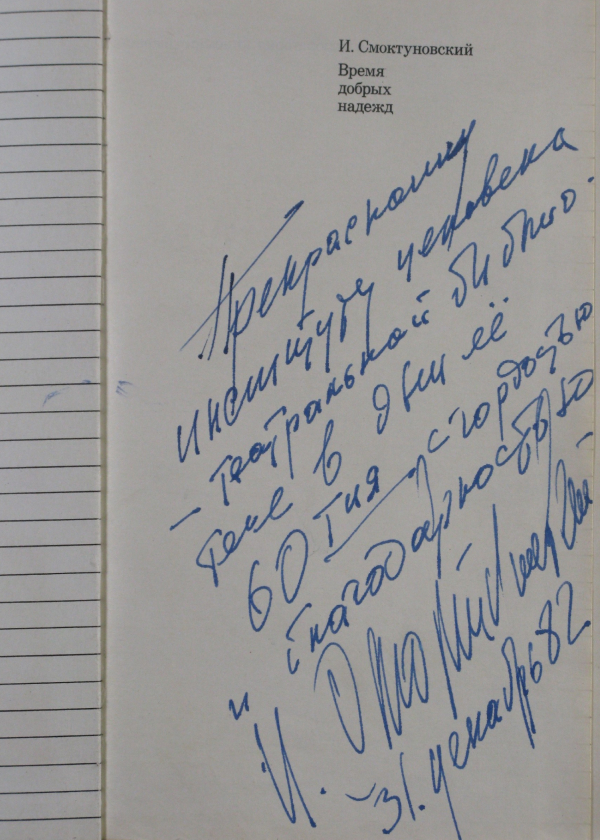 И. Смоктуновский
Время
добрых
надежд
Прекрасному
институту человека
– театральной библио-
теке в дни её
60тия, с гордостью
и благодарностью
И. Смоктуновский
– 31. декабрь 82.